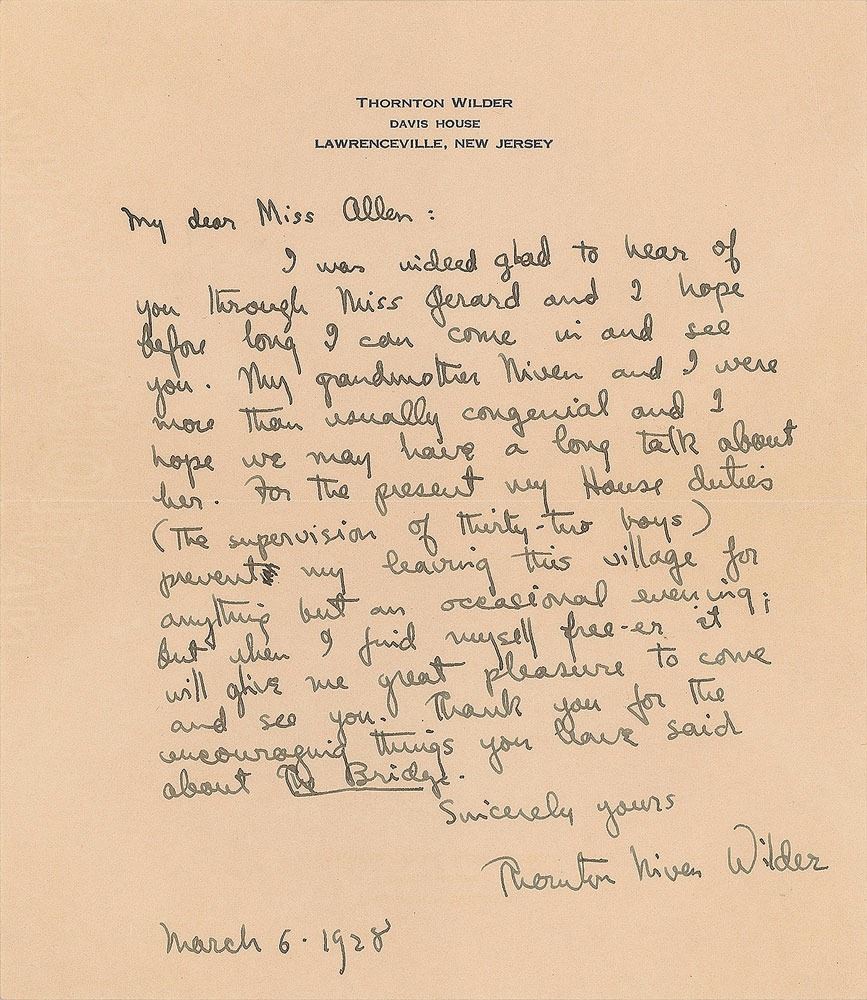 THORNTON WILDER
DAVIS HOUSE
LAWRENCEVILLE, NEW JERSEY
My dear Miss Allen:
I was indeed glad to hear of
you through Miss Gerard and I hope
before long I can come in and see
you. My grandmother Niven and I were
more than usually congenial and I
hope we may have a long talk about
her. For the present my House duties
(the supervision of thirty-two boys)
prevent my leaving this village for
anything but an occasional evening;
but when I find myself free-er it
will give me great pleasure to come
and see you. Thank you for the
encouraging things you have said
about The Bridge.
Sincerely yours
Thornton Niven Wilder
March 6 · 1928